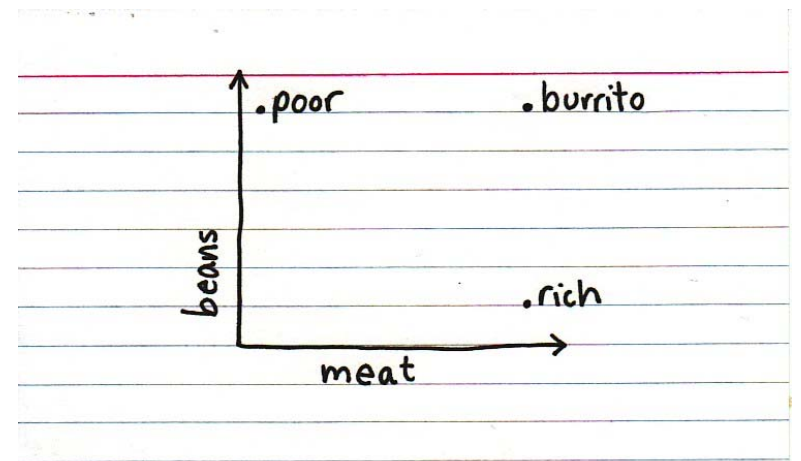 .poor
.burrito
beans
.rich
meat